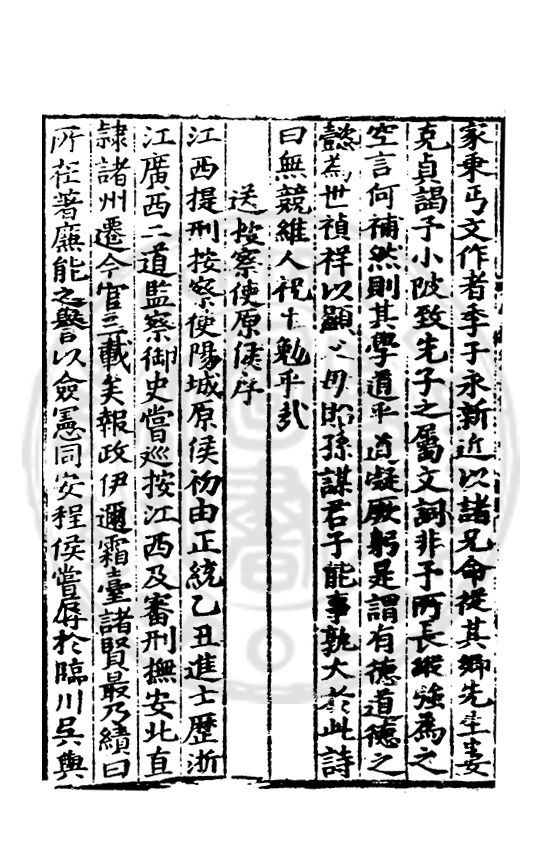 家乗丐文作者季子永新近以諸兄命從其鄉先生婁
克貞謁予小陂致先子之屬文詞非予所長縱強為之
空言何補然則其學道乎道凝厥躬是謂有德道德之
懿為世禎祥以顯父母貽孫謀君子能事孰大於此詩
曰無競維人祝士勉乎哉
送按察使原侯序
江西提刑按察使陽城原侯初由正統乙丑進士歷浙
江廣西二道監察御史嘗巡按江西及審刑撫安北直
隸諸州遷今官三載矣報政伊邇霜臺諸賢最乃績曰
所在著廉能之譽以僉憲同安程侯嘗辱於臨川吳與